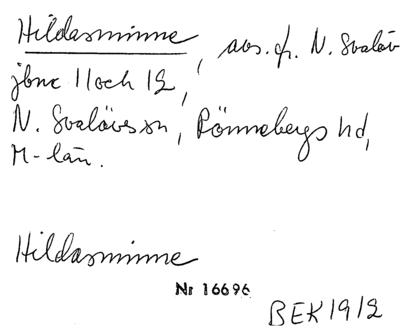 Hildasminne, avs. fr. N. Svalöv
jbnr 11 och 12,
N. Svalövs sn, Rönnebergs hd,
M-län.
Hildasminne
Nr 16696
BEK 19/2